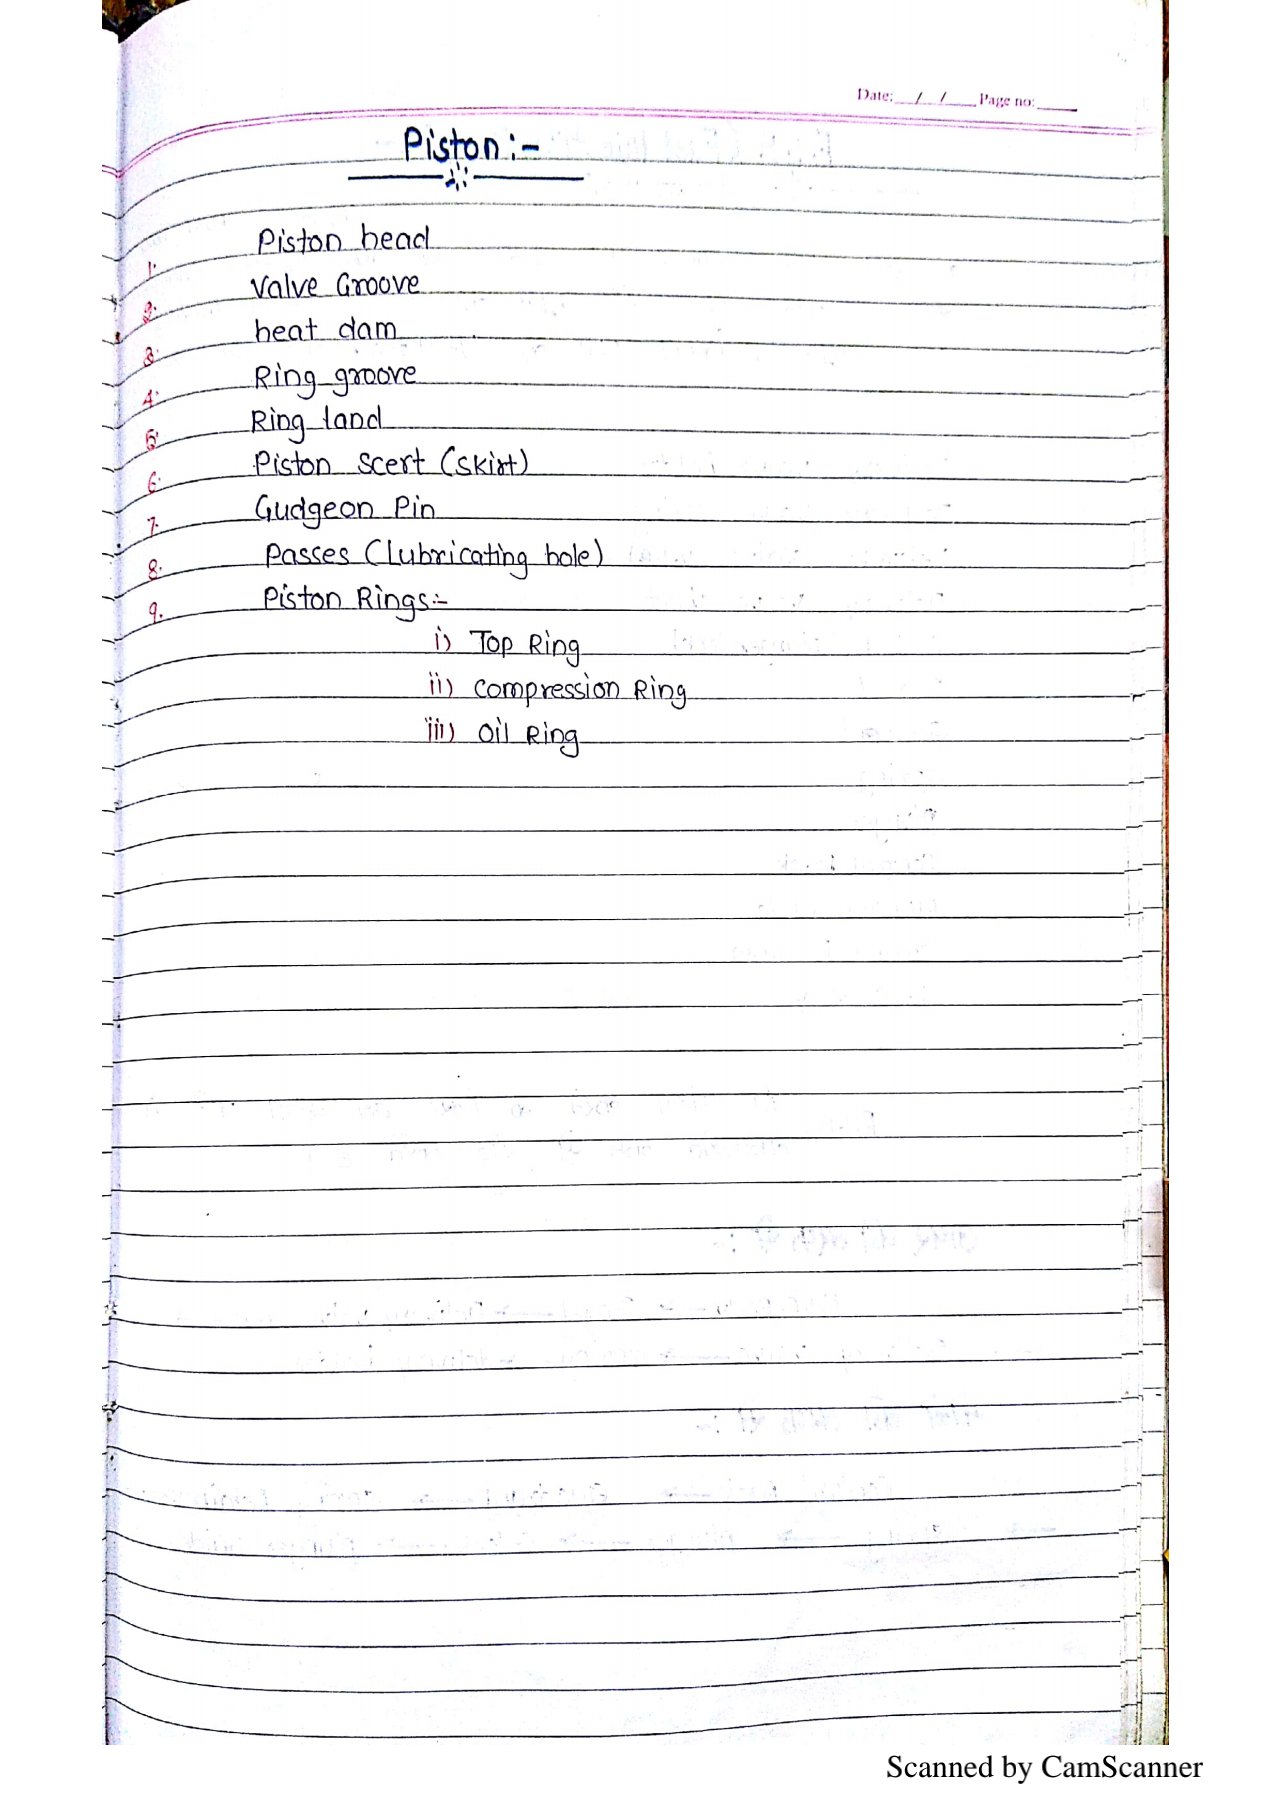 Date: __/__/____ Page no: ____
Piston:-
1. Piston head
2. Valve Groove
3. heat dam
4. Ring groove
5. Ring land
6. Piston scert (skirt)
7. Gudgeon Pin
8. Passes (Lubricating hole)
9. Piston Rings:-
i) Top Ring
ii) compression Ring
iii) Oil Ring
Scanned by CamScanner